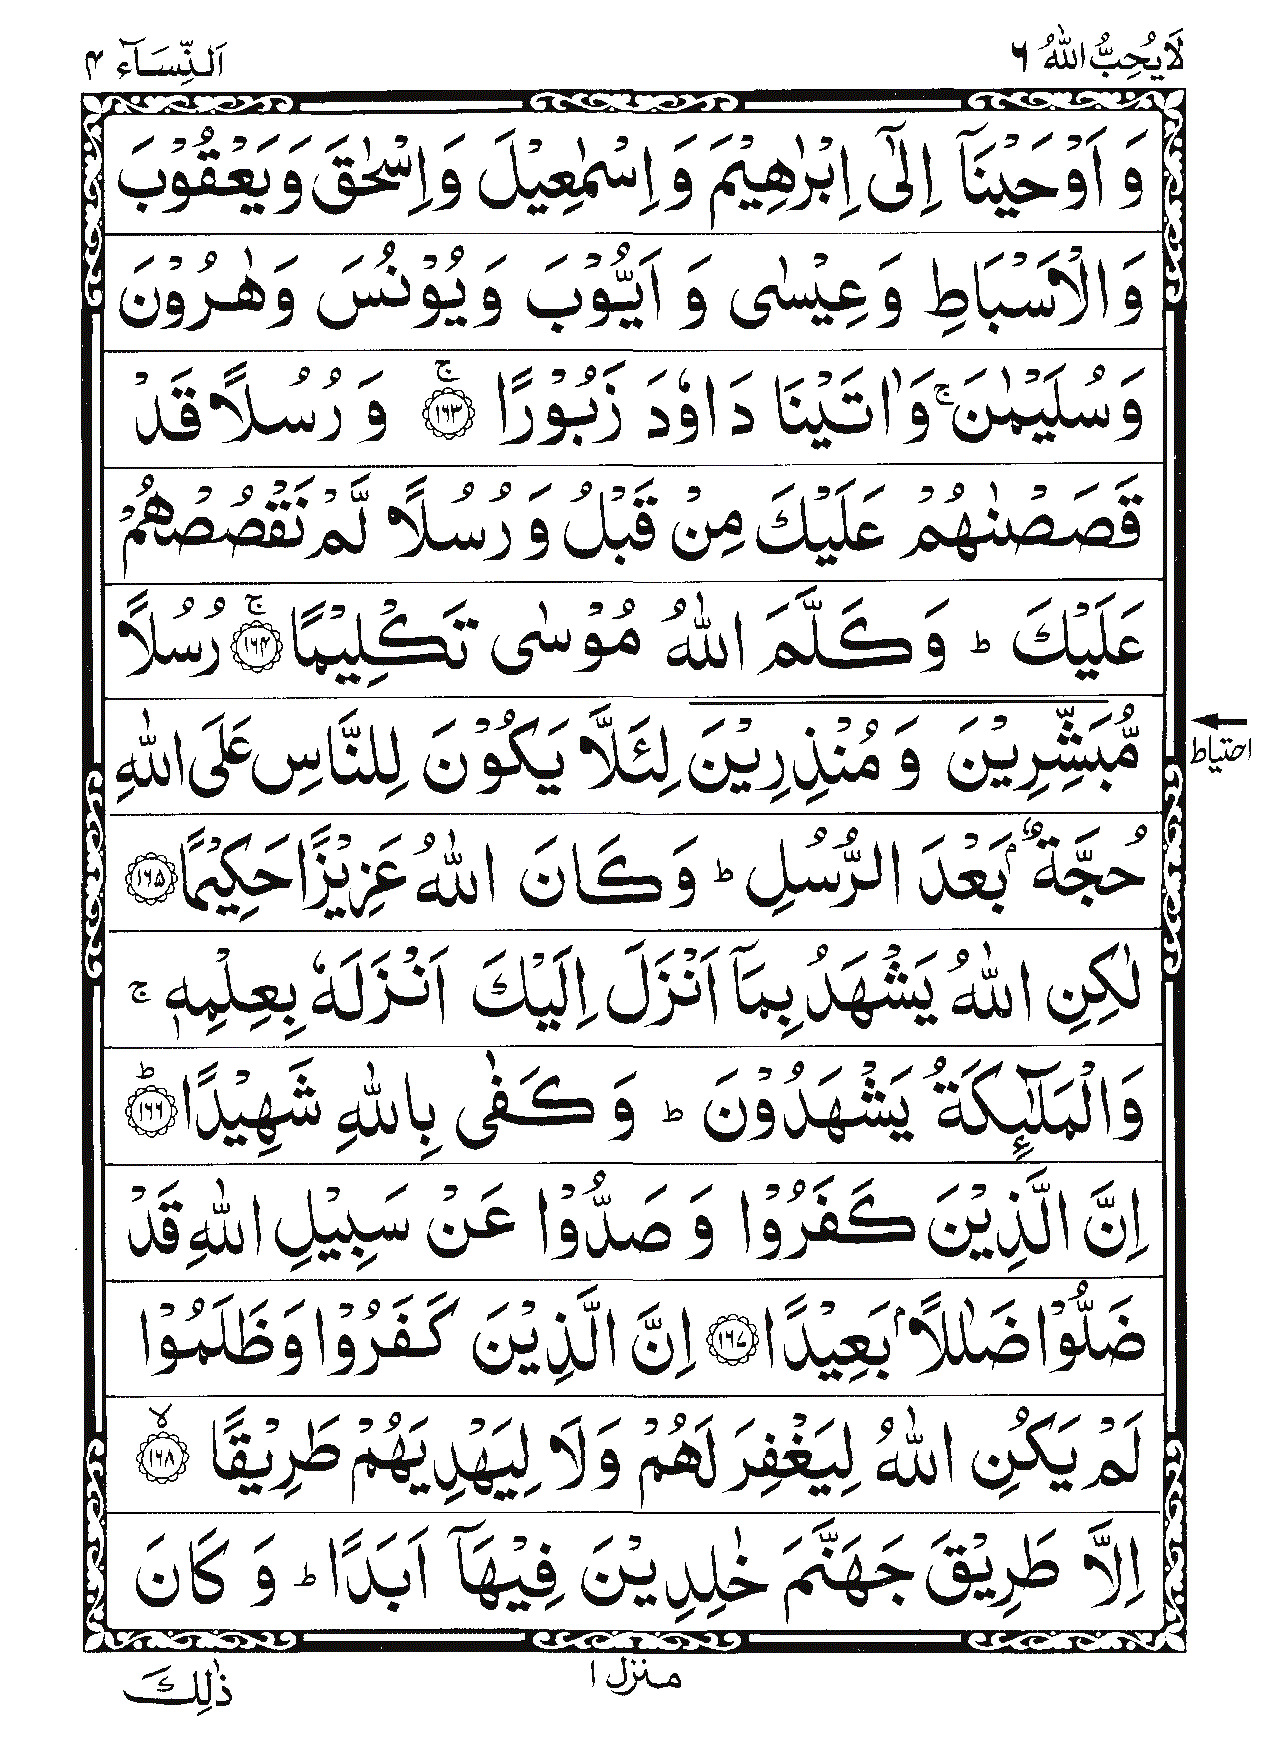 لَا يُحِبُّ اللهُ ٦
اَلنِّسَآء ٤
وَ اَوْحَيْنَآ اِلٰٓى اِبْرٰهِيْمَ وَ اِسْمٰعِيْلَ وَاِسْحٰقَ وَيَعْقُوْبَ
وَالْاَسْبَاطِ وَعِيْسٰى وَ اَيُّوْبَ وَيُوْنُسَ وَهٰرُوْنَ
وَسُلَيْمٰنَ ۚ وَاٰتَيْنَا دَاوٗدَ زَبُوْرًا ۚ‏ ﴿١٦٣﴾ وَ رُسُلًا قَدْ
قَصَصْنٰهُمْ عَلَيْكَ مِنْ قَبْلُ وَ رُسُلًا لَّمْ نَقْصُصْهُمْ
عَلَيْكَ ؕ وَكَلَّمَ اللهُ مُوْسٰى تَكْلِيْمًا ۚ‏ ﴿١٦٤﴾ رُسُلًا
مُّبَشِّرِيْنَ وَ مُنْذِرِيْنَ لِئَلَّا يَكُوْنَ لِلنَّاسِ عَلَى اللهِ
احتياط
حُجَّةٌۢ بَعْدَ الرُّسُلِ ؕ وَكَانَ اللهُ عَزِيْزًا حَكِيْمًا ﴿١٦٥﴾
لٰكِنِ اللهُ يَشْهَدُ بِمَآ اَنْزَلَ اِلَيْكَ اَنْزَلَهٗ بِعِلْمِهٖ ۚ
وَالْمَلٰٓئِكَةُ يَشْهَدُوْنَ ؕ وَ كَفٰى بِاللهِ شَهِيْدًا ؕ‏ ﴿١٦٦﴾
اِنَّ الَّذِيْنَ كَفَرُوْا وَ صَدُّوْا عَنْ سَبِيْلِ اللهِ قَدْ
ضَلُّوْا ضَلٰلًاۢ بَعِيْدًا ﴿١٦٧﴾ اِنَّ الَّذِيْنَ كَفَرُوْا وَظَلَمُوْا
لَمْ يَكُنِ اللهُ لِيَغْفِرَ لَهُمْ وَلَا لِيَهْدِيَهُمْ طَرِيْقًا ۙ‏ ﴿١٦٨﴾
اِلَّا طَرِيْقَ جَهَنَّمَ خٰلِدِيْنَ فِيْهَآ اَبَدًا ؕ وَ كَانَ
منزل ١
ذٰلِكَ